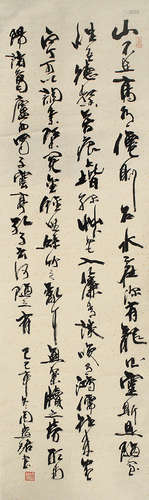 山不在高有僊則名水不在深有龍則靈斯是陋室
惟吾德馨苔痕上階綠草色入簾青談笑有鴻儒往來無
白丁可以調素琴閱金經無絲竹之亂耳無案牘之勞形南
陽諸葛廬西蜀子雲亭孔子云何陋之有